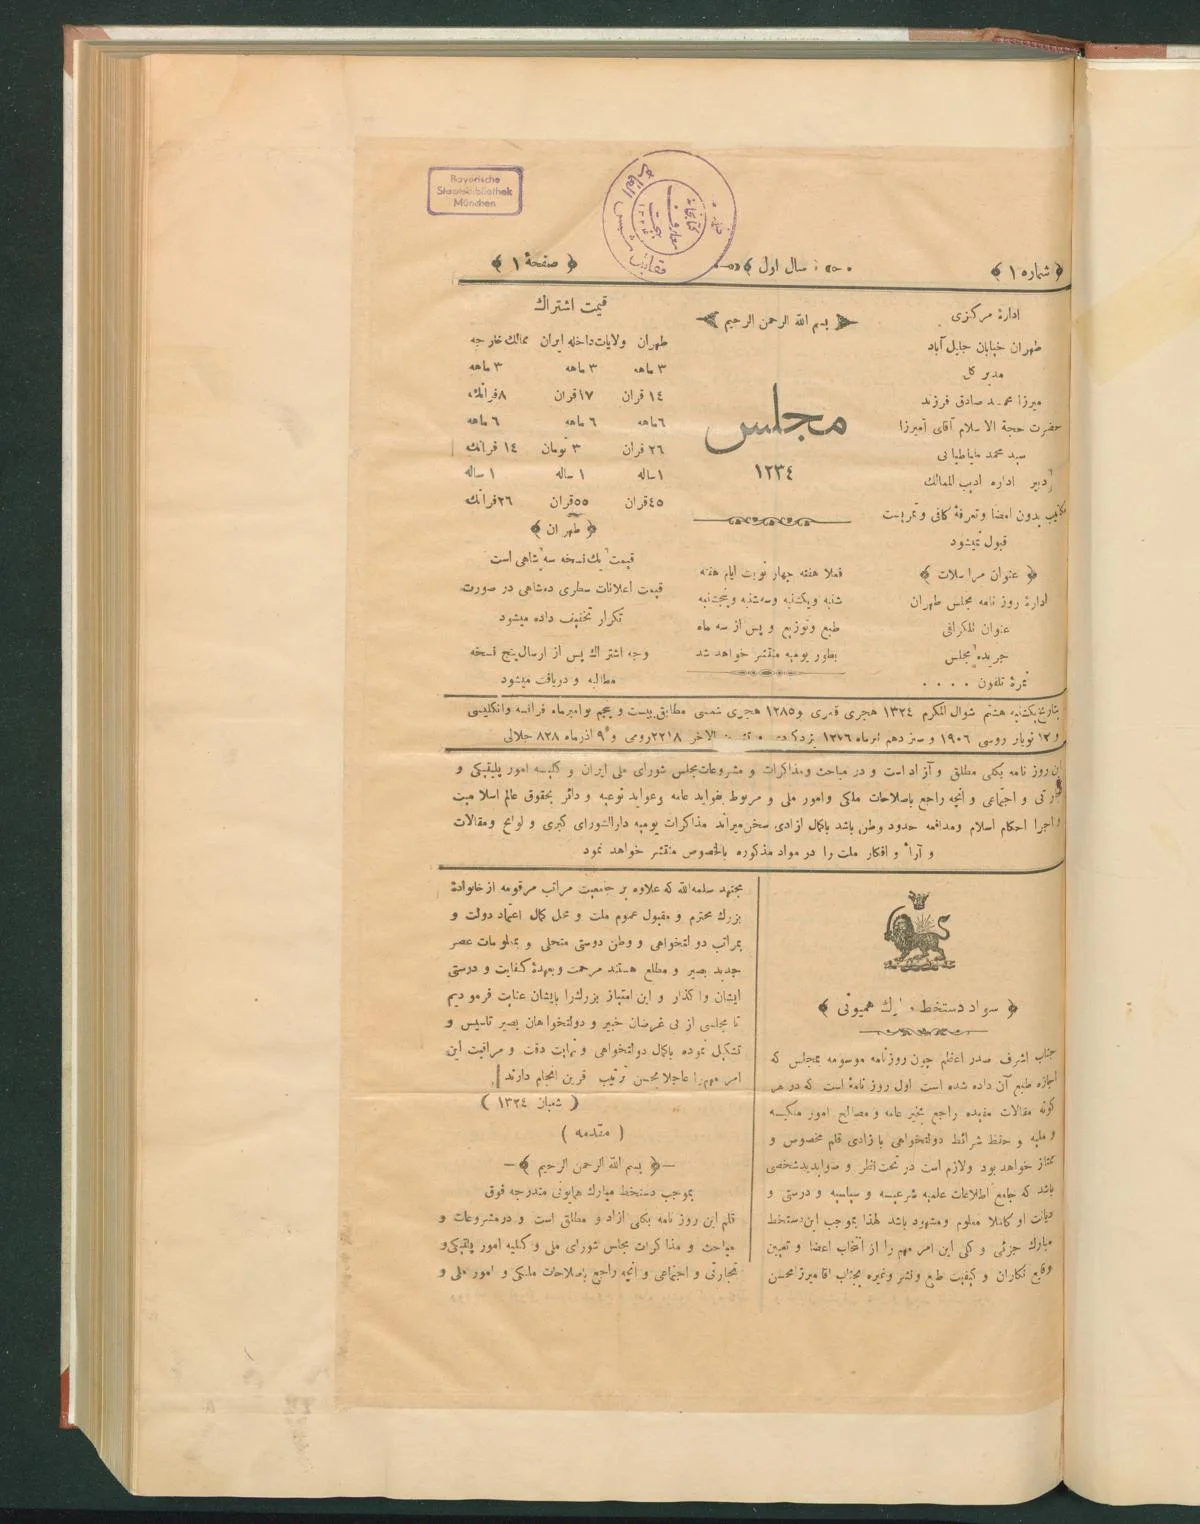 Bayerische
Staatsbibliothek
München
﴿ شماره ۱ ﴾
سال اول
﴿ صفحهٔ ۱ ﴾
ادارهٔ مرکزی
طهران خیابان جلیل آباد
مدیر کل
میرزا محمد صادق فرزند
حضرت حجة الاسلام آقای آمیرزا
سید محمد طباطبائی
دبیر اداره ادیب الممالک
مکاتیب بدون امضا وتعرفهٔ کافی و تمرپست
قبول نمیشود
﴿ عنوان مراسلات ﴾
ادارهٔ روز نامه مجلس طهران
عنوان تلگرافی
جریده مجلس
نمرهٔ تلفون ۰ ۰ ۰ ۰
بسم الله الرحمن الرحیم
مجلس
۱۲۳٤
فعلا هفته چهار نوبت ایام هفته
شنبه ویکشنبه وسه شنبه وپنجشنبه
طبع وتوزیع و پس از سه ماه
بطور یومیه منتشر خواهد شد
قیمت اشتراک
طهران ولایات داخله ایران ممالک خارجه
۳ ماهه ۳ ماهه ۳ ماهه
۱٤ قران ۱۷ قران ۸ فرانک
٦ ماهه ٦ ماهه ٦ ماهه
۲٦ قران ۳ تومان ۱٤ فرانک
۱ ساله ۱ ساله ۱ ساله
٤٥ قران ٥٥ قران ۲٦ فرانک
﴿ طهران ﴾
قیمت یک نسخه سه شاهی است
قیمت اعلانات سطری ده شاهی در صورت
تکرار تخفیف داده میشود
وجه اشتراک پس از ارسال پنج نسخه
مطالبه و دریافت میشود
بتاریخ یکشنبه هشتم شوال المکرم ۱۳۲٤ هجری قمری و ۱۲۸٥ هجری شمسی مطابق بیست و پنجم نوامبر ماه فرانسه وانگلیسی
و ۱۲ نویابر روسی ۱۹۰٦ و سیزدهم تیر ماه ۱۲۷٦ یزدگردی الاخر ۲۲۱۸ رومی و ۹ آذر ماه ۸۲۸ جلالی
این روز نامه بکلی مطلق و آزاد است و در مباحث ومذاکرات و مشروعات مجلس شورای ملی ایران و کلیه امور پلیتیکی و
و اجتماعی و آنچه راجع باصلاحات ملکی وامور ملی و مربوط بفواید عامه وعواید نوعیه و دائر بحقوق عالم اسلامیت
واجرا احکام اسلام ومدافعه حدود وطن باشد بکمال ازادی سخن میراند مذاکرات یومیه دارالشورای کبری و لوایح ومقالات
و آراء و افکار ملت را در مواد مذکوره بالخصوص منتشر خواهد نمود
﴿ سواد دستخط همیونی ﴾
جناب اشرف صدر اعظم چون روزنامه موسومه بمجلس که
اجازه طبع آن داده شده است اول روز نامهٔ است که در هر
گونه مقالات مفیده راجع بخیر عامه و مصالح امور ملکیه
و ملیه و حفظ شرائط دولتخواهی بازادی قلم مخصوص و
ممتاز خواهد بود ولازم است در تحت نظر و صوابدید شخصی
باشد که جامع اطلاعات علمیه شرعیه و سیاسیه و درستی و
دیانت او کاملا معلوم ومشهود باشد لهذا بموجب این دستخط
مبارک جزئی و کلی این امر مهم را از انتخاب اعضا و تعیین
وقایع نگاران و کیفیت طبع ونشر وغیره بجناب اقا میرزا محسن
مجتهد سلمه الله که علاوه بر جامعیت مراتب مرقومه از خانوادهٔ
بزرگ محترم و مقبول عموم ملت و محل کمال اعتماد دولت و
بمراتب دولتخواهی و وطن دوستی متحلی و بمعلومات عصر
جدید بصیر و مطلع هستند مرحمت وبعهدهٔ کفایت و دوستی
ایشان واگذار و این امتیاز بزرگ را بایشان عنایت فرمودیم
تا مجلسی از بی غرضان خبیر و دولتخواهان بصیر تاسیس و
تشکیل نموده بکمال دولتخواهی و نهایت دقت و مراقبت این
امر مهم را عاجلا بحسن ترتیب قرین انجام دارند
( شعبان ۱۳۲٤ )
( مقدمه )
﴿ بسم الله الرحمن الرحیم ﴾
بموجب دستخط مبارک همایونی مندرجه فوق
قلم این روز نامه بکلی ازاد و مطلق است و در مشروعات و
مباحث و مذاکرات مجلس شورای ملی و کلیه امور پلتیکی و
تجارتی و اجتماعی و آنچه راجع باصلاحات ملکی و امور ملی و